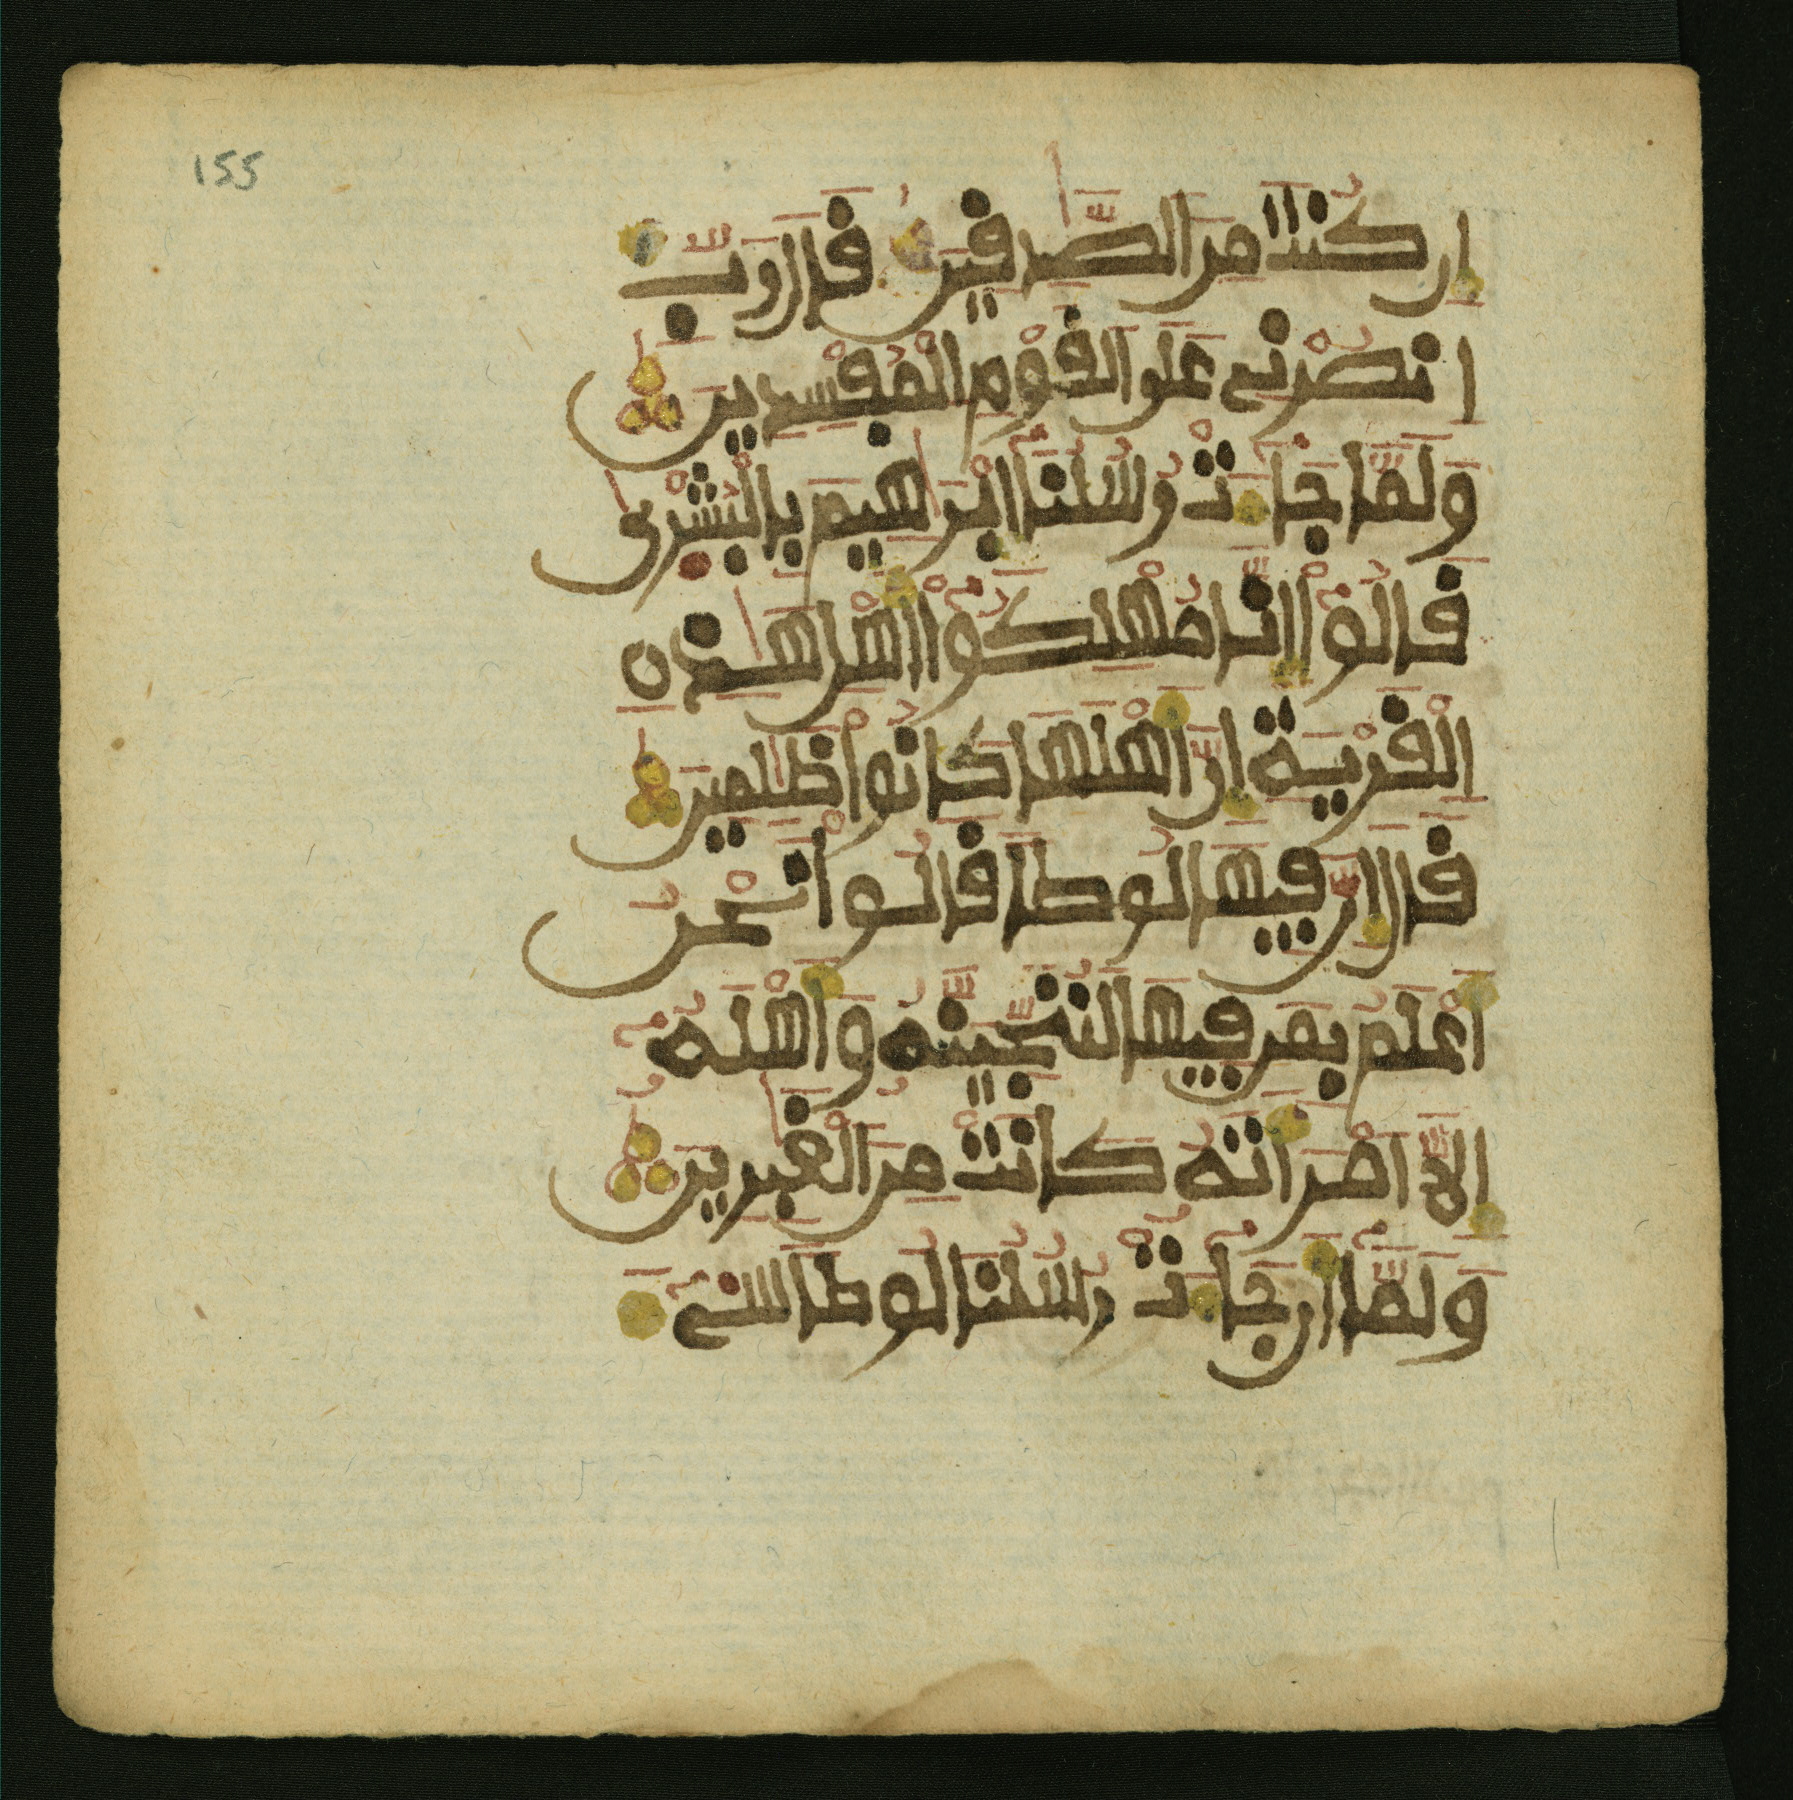 155
ان كنت من الصدقين قال رب
انصرني على القوم المفسدين
ولما جاءت رسلنا ابرهيم بالبشرى
قالوا انا مهلكوا اهل هذه
القرية ان اهلها كانوا ظلمين
قال ان فيها لوطا قالوا نحن
اعلم بمن فيها لننجينه واهله
الا امراته كانت من الغبرين
ولما ان جاءت رسلنا لوطا سيء